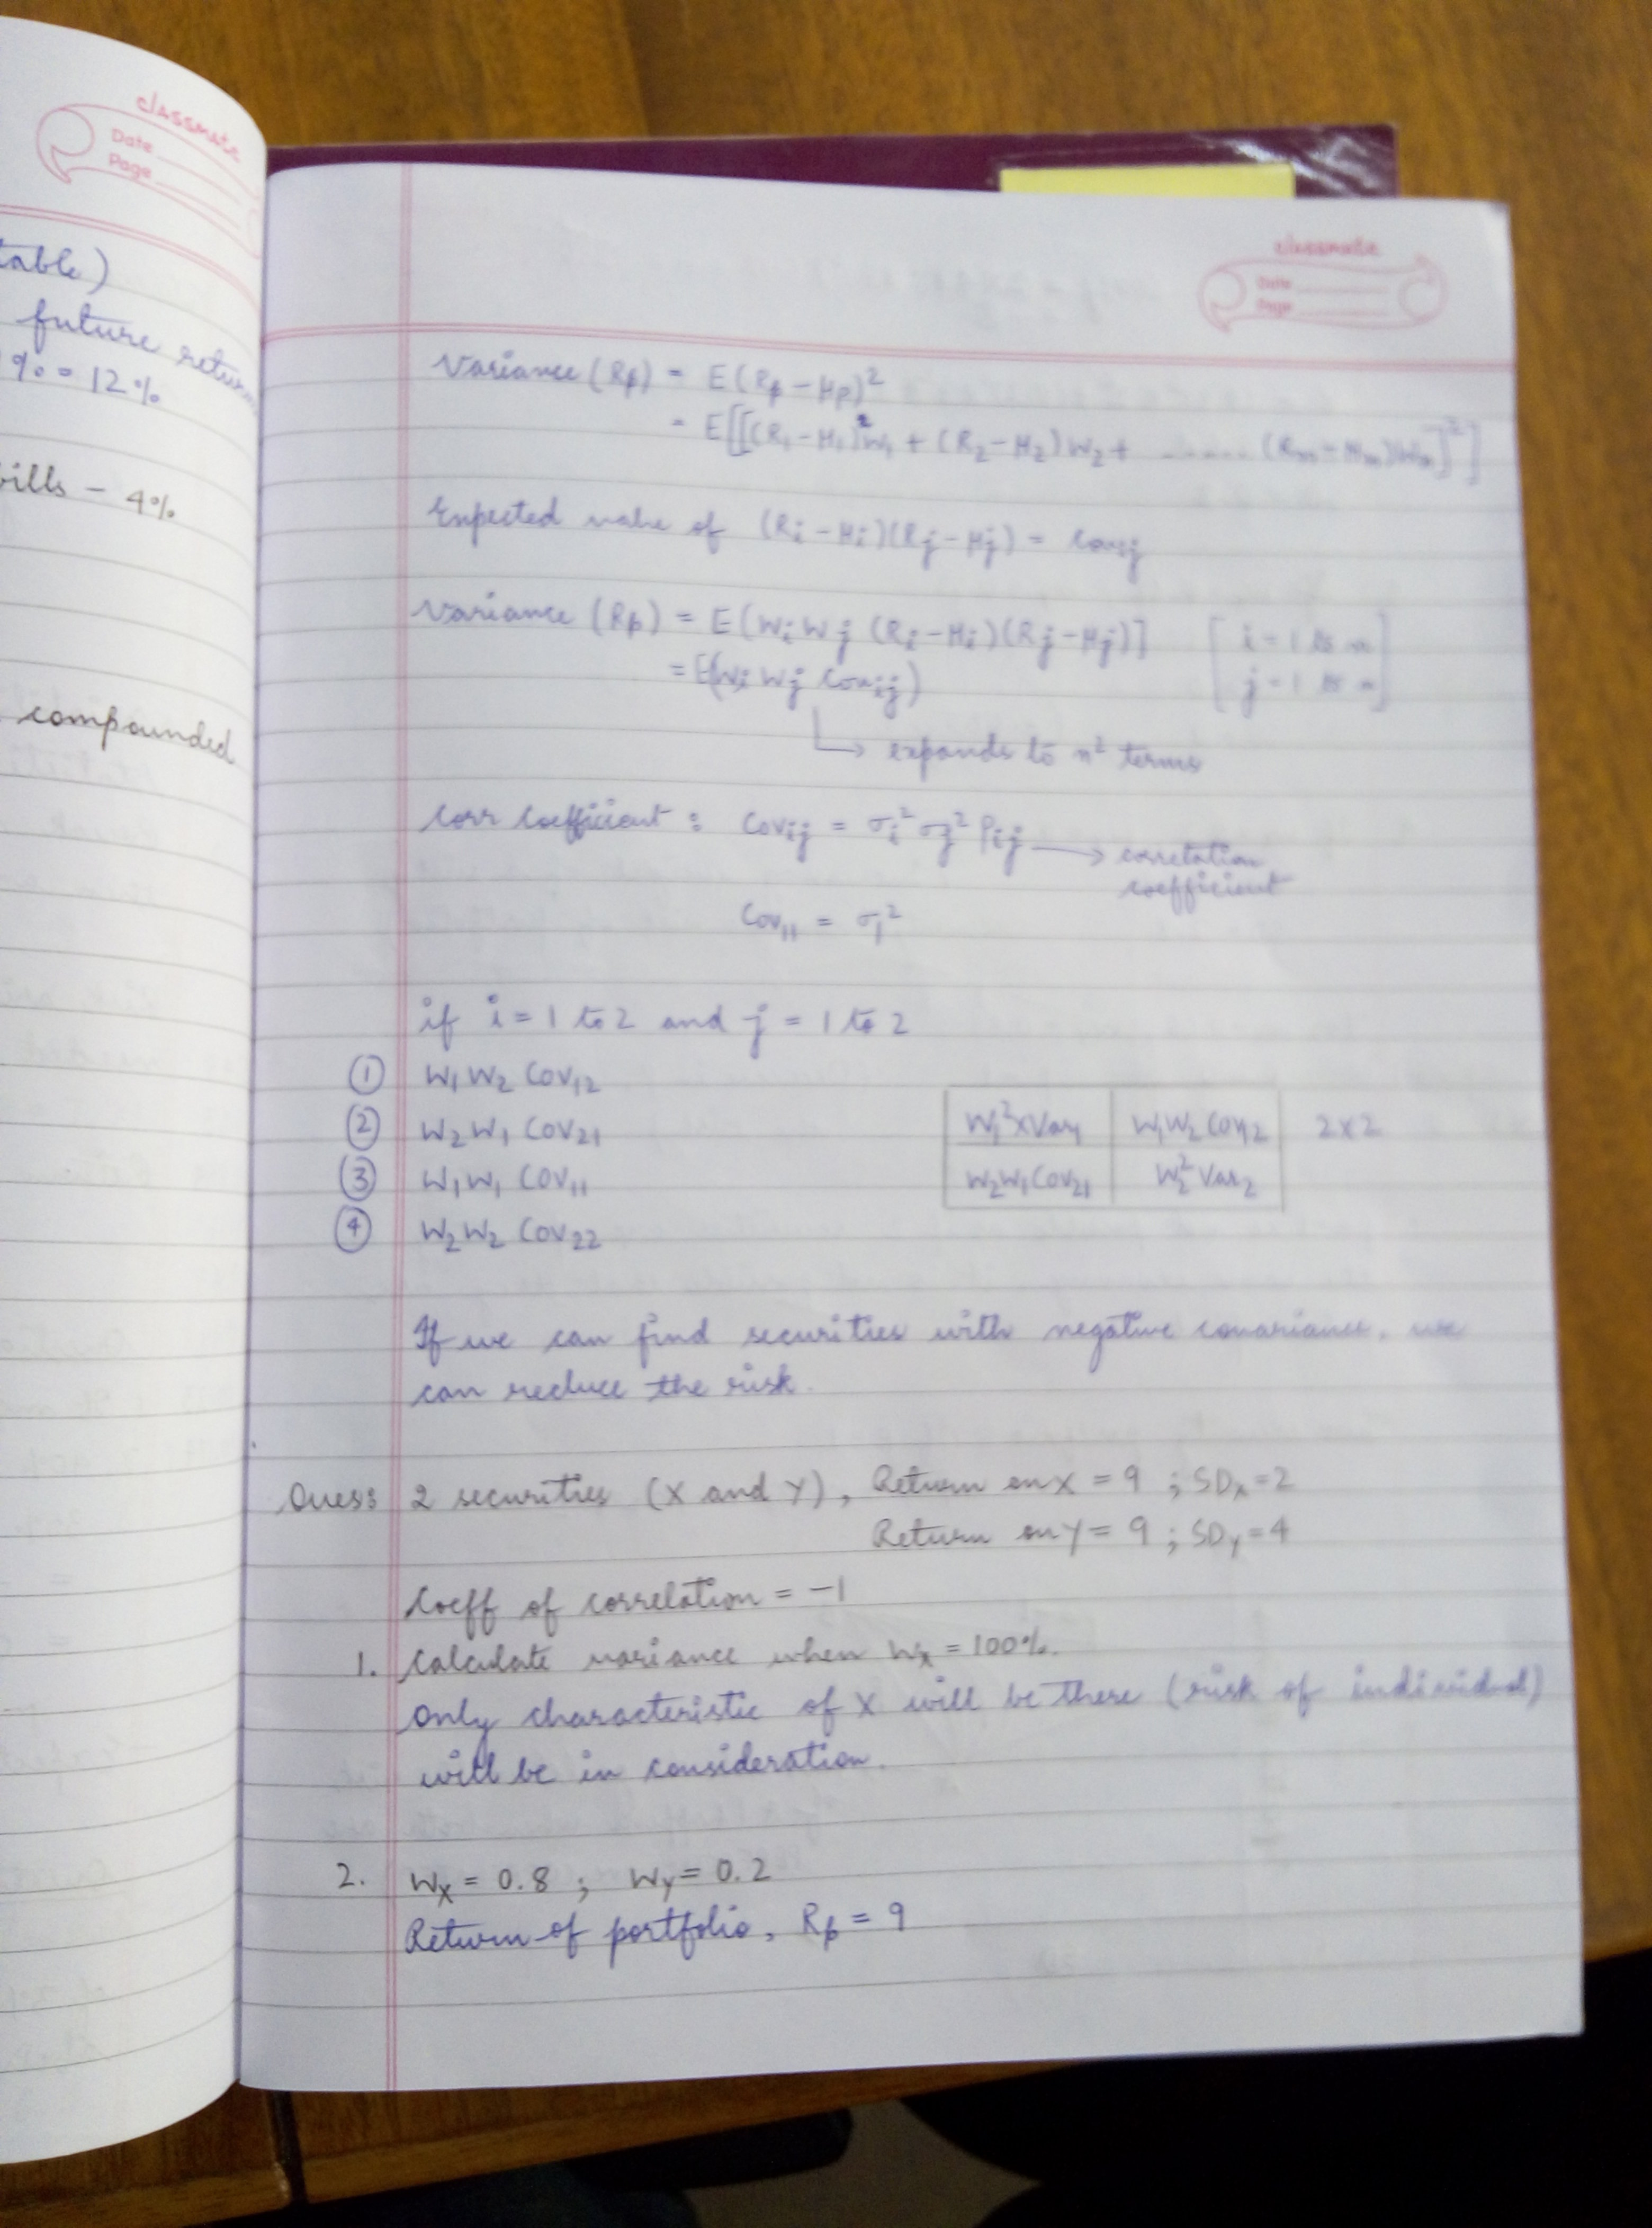 classmate
Date
Page
table)
future return
% = 12%
bills - 4%
compounded
classmate
Date
Page
Variance (Rp) = E(Rp - μp)²
= E[[(R₁ - μ₁)²W₁ + (R₂ - μ₂)W₂ + ...... (Rn - μn)Wn]²]
Expected value of (Ri - μi)(Rj - μj) = Covij
Variance (Rp) = E(Wi Wj (Ri - μi)(Rj - μj)] [ i = 1 to n
= E(Wi Wj Covij) j = 1 to n ]
↳ expands to n² terms
Corr Coefficient : Covij = σi² σj² ρij → correlation
coefficient
Cov₁₁ = σ₁²
if i = 1 to 2 and j = 1 to 2
① W₁ W₂ Cov₁₂
② W₂ W₁ Cov₂₁ W₁²xVar₁ W₁W₂Cov₁₂ 2x2
③ W₁ W₁ Cov₁₁ W₂W₁Cov₂₁ W₂² Var₂
④ W₂ W₂ Cov₂₂
If we can find securities with negative covariance, we
can reduce the risk.
Ques: 2 securities (X and Y), Return on X = 9 ; SDx = 2
Return on Y = 9 ; SDy = 4
Coeff of correlation = -1
1. Calculate variance when Wx = 100%.
only characteristic of X will be there (risk of individual)
will be in consideration.
2. Wx = 0.8 ; Wy = 0.2
Return of portfolio, Rp = 9